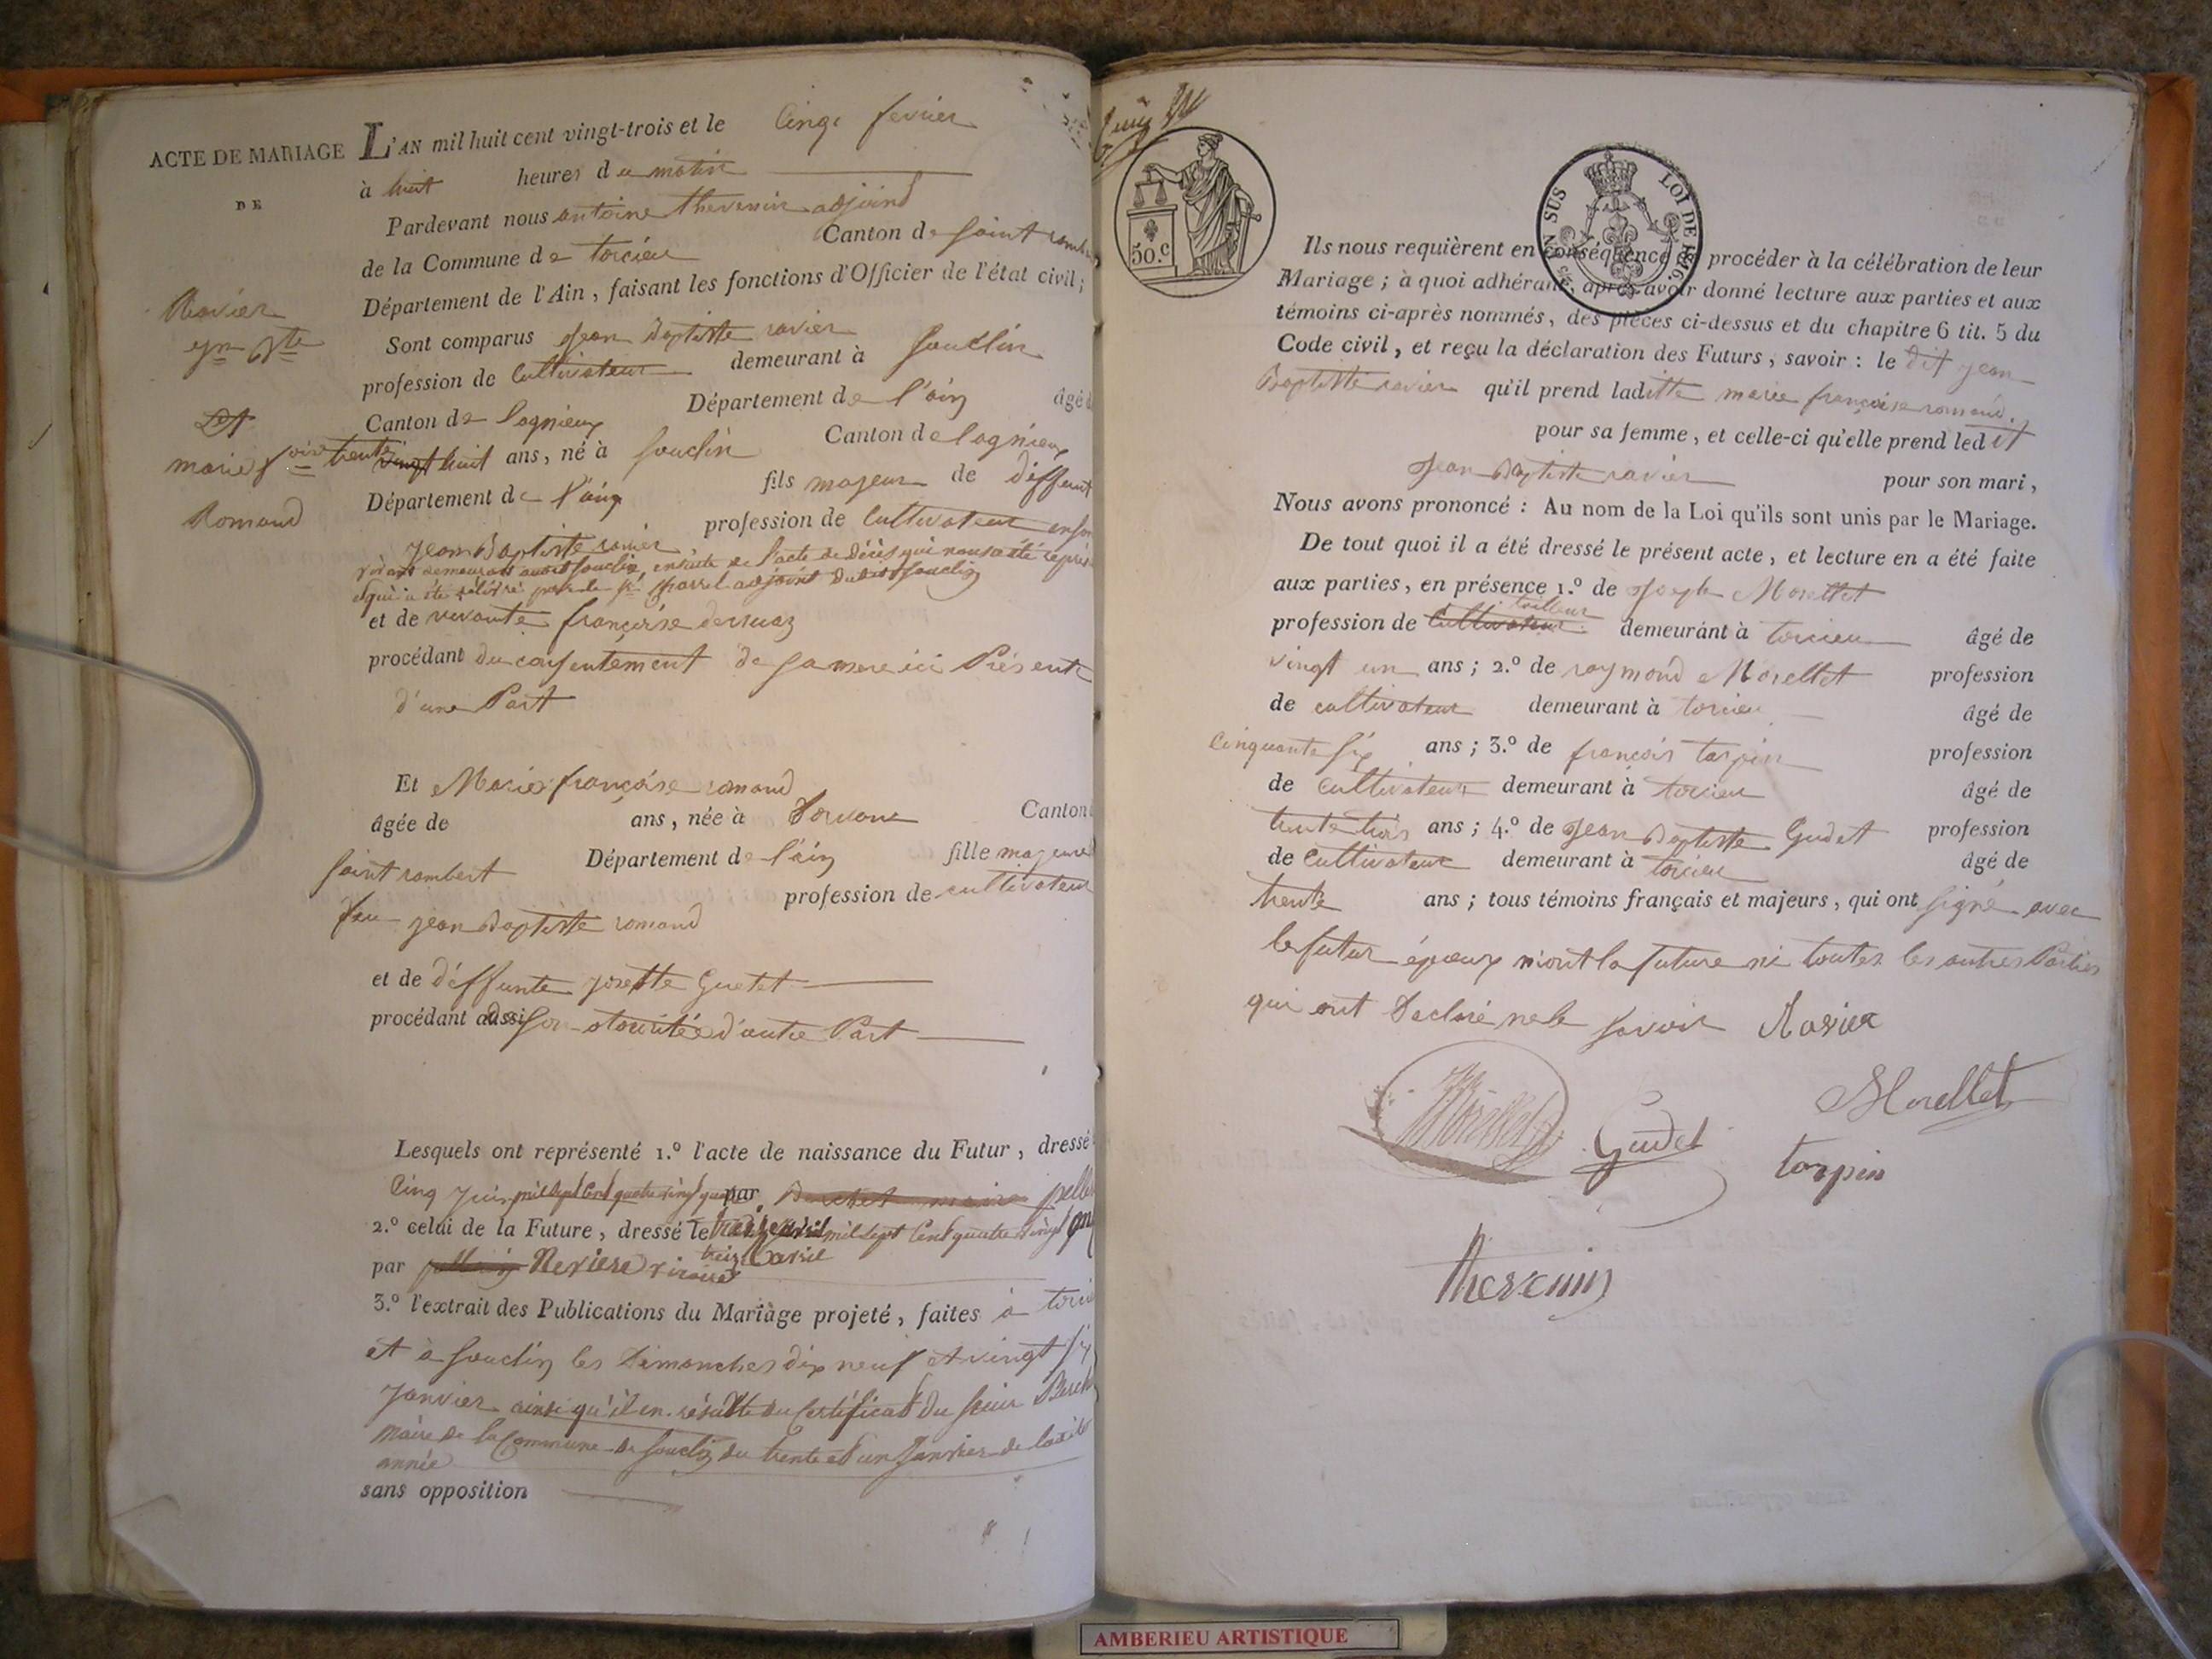 ACTE DE MARIAGE
DE
Ravier
jn Bte
Et
marie foise
Romand
L'AN mil huit cent vingt-trois et le Cinq fevrier
à huit heures du matin
Pardevant nous antoine thevenin adjoind
de la Commune de torcieu Canton de saint ramb
Département de l'Ain, faisant les fonctions d'Officier de l'état civil;
Sont comparus Jean Baptiste ravier
profession de Cultivateur demeurant à Souclin
Canton de lagnieux Département de l'ain âgé d
trente vingt huit ans, né à souclin Canton de lagnieux
Département de l'ain fils majeur de deffunt
Jean Baptiste ravier profession de Cultivateur en son
vivant demeurant audit Souclin, ensuite de l'acte de décès qui nous a été représ
et qui a été délivré par le Sr Charvel adjoint dudit Souclin
et de vivante françoise derruaz
procédant du consentement de sa mere ici Présente
d'une Part
Et Marie françoise romand
âgée de ans, née à Torvane Canton
saint rambert Département de l'ain fille majeure d
feu jean Baptiste romand profession de cultivateur
et de déffunte josette Guetet
procédant aussi de son otourité d'autre Part
Lesquels ont représenté 1.º l'acte de naissance du Futur, dressé
Cinq juin mil sept cent quatre vingt par maire
2.º celui de la Future, dressé le avril mil sept Cent quatre vingt
treize avril
par vicaire
3.º l'extrait des Publications du Mariage projeté, faites à torci
et à Souclin les Dimanches dix neuf et vingt six
Janvier ainsi qu'il en résulte du Certificat du sieur
maire de la Commune de Souclin du trente et un Janvier de ladite
année
sans opposition
50.c
SUS
LOI DE 1816.
Ils nous requièrent en conséquence de procéder à la célébration de leur
Mariage; à quoi adhérant, après avoir donné lecture aux parties et aux
témoins ci-après nommés, des pièces ci-dessus et du chapitre 6 tit. 5 du
Code civil, et reçu la déclaration des Futurs, savoir: le dit jean
Baptiste ravier qu'il prend laditte marie françoise romand
pour sa femme, et celle-ci qu'elle prend ledit
Jean Baptiste ravier pour son mari,
Nous avons prononcé: Au nom de la Loi qu'ils sont unis par le Mariage.
De tout quoi il a été dressé le présent acte, et lecture en a été faite
aux parties, en présence 1.º de Joseph Morellet
tailleur
profession de Cultivateur demeurant à torcieu âgé de
vingt un ans; 2.º de raymond Morellet profession
de cultivateur demeurant à torcieu âgé de
Cinquante six ans; 3.º de françois tarpin profession
de Cultivateur demeurant à torcieu âgé de
trente trois ans; 4.º de Jean Baptiste Gudet profession
de Cultivateur demeurant à torcieu âgé de
trente ans; tous témoins français et majeurs, qui ont signé avec
le futur époux n'ont la future ni toutes les autres Parties
qui ont Declaré ne le savoir Ravier
Morellet
Morellet
Gudet
tarpin
thevenin
AMBERIEU ARTISTIQUE